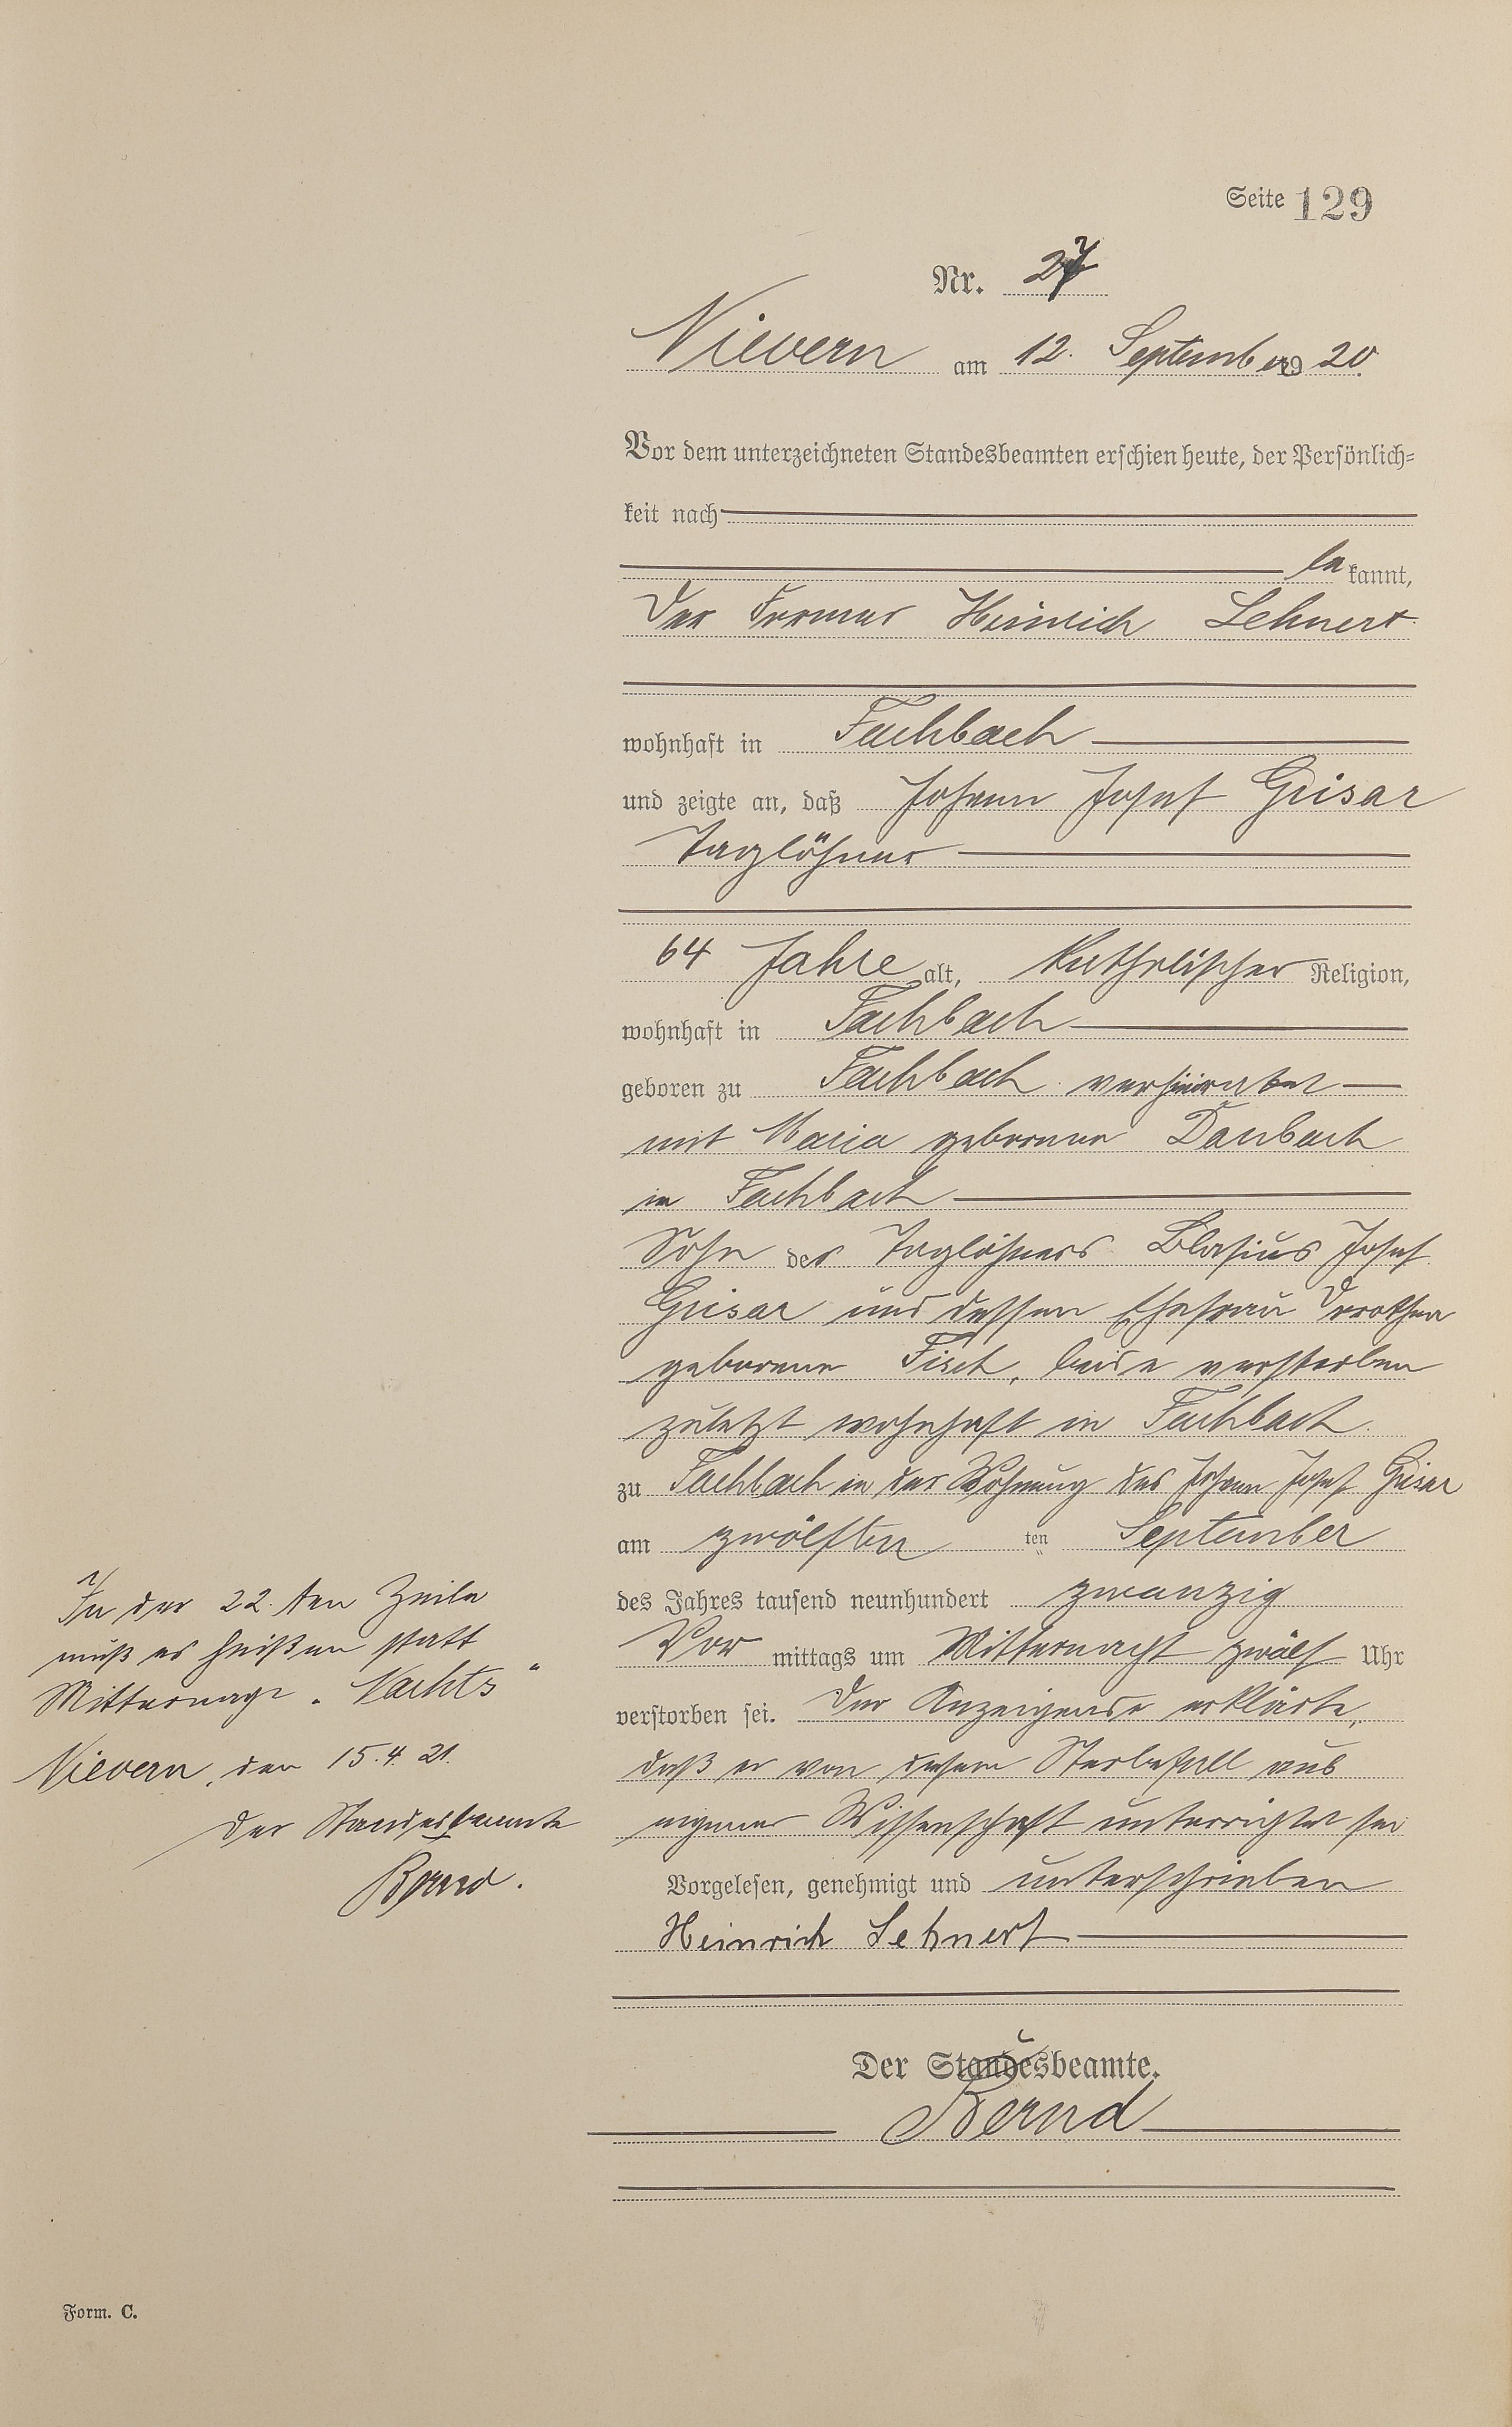 Seite 129
Nr. 27
Nievern am 12. September 1920.
Vor dem unterzeichneten Standesbeamten erschien heute, der Persönlich=
keit nach
be kannt,
der Former Heinrich Lehnert
wohnhaft in Fachbach
und zeigte an, daß Johann Josef Grisar
Taglöhner
64 Jahre alt, katholischer Religion,
wohnhaft in Fachbach
geboren zu Fachbach verheiratet
mit Maria geborene Daubach
in Fachbach
Sohn des Taglöhners Blasius Josef
Grisar und dessen Ehefrau Drothea
geborene Fisch, beide verstorben
zuletzt wohnhaft in Fachbach.
zu Fachbach in der Wohnung des Johann Josef Grisar
am zwölften ten September
des Jahres tausend neunhundert zwanzig
Vor mittags um Mitternacht zwölf Uhr
verstorben sei. Der Anzeigende erklärte,
daß er von diesem Sterbefall aus
eigener Wissenschaft unterrichtet sei
Vorgelesen, genehmigt und unterschrieben
Heinrich Lehnert
Der Standesbeamte.
Bernd
In der 22. ten Zeile
muß es heißen statt
Mitternacht „Nachts“
Nievern, den 15.4.21.
Der Standesbeamte
Bernd.
Form. C.